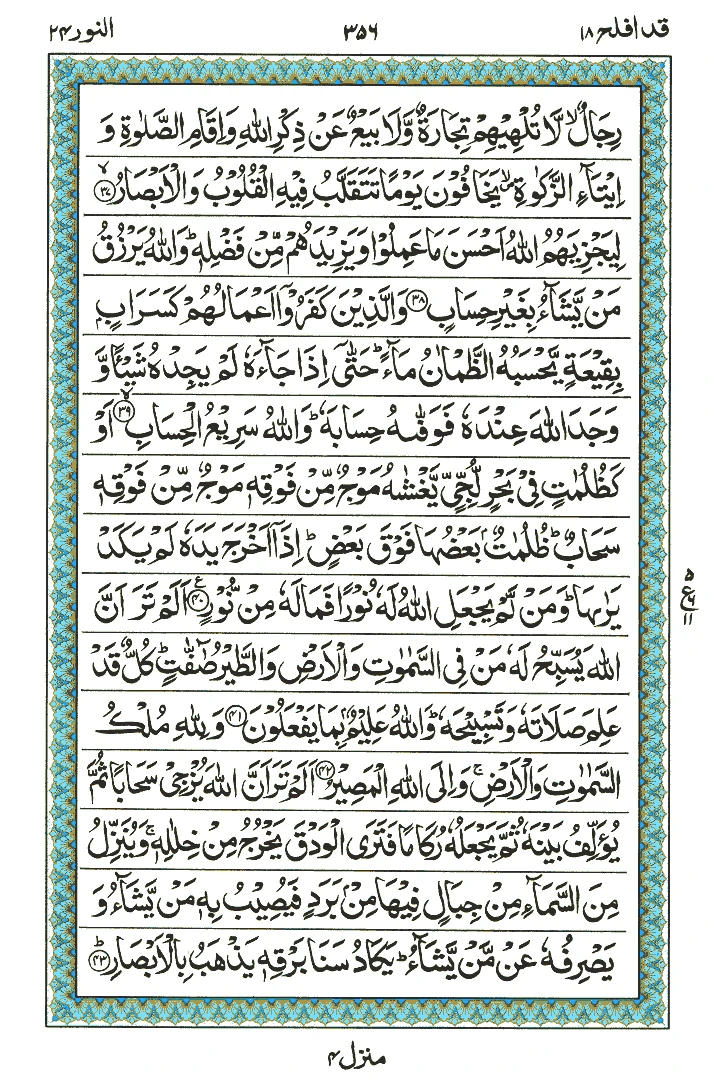 قد افلح ۱۸ ۳۵۶ النور ۲۴
رِجَالٌ ۙ لَّا تُلْهِيْهِمْ تِجَارَةٌ وَّلَا بَيْعٌ عَنْ ذِكْرِ اللّٰهِ وَاِقَامِ الصَّلٰوةِ وَ
اِيْتَآءِ الزَّكٰوةِ ۙ يَخَافُوْنَ يَوْمًا تَتَقَلَّبُ فِيْهِ الْقُلُوْبُ وَالْاَبْصَارُ ۙ ﴿۳۷﴾
لِيَجْزِيَهُمُ اللّٰهُ اَحْسَنَ مَا عَمِلُوْا وَيَزِيْدَهُمْ مِّنْ فَضْلِهٖ ؕ وَاللّٰهُ يَرْزُقُ
مَنْ يَّشَآءُ بِغَيْرِ حِسَابٍ ﴿۳۸﴾ وَالَّذِيْنَ كَفَرُوْۤا اَعْمَالُهُمْ كَسَرَابٍۭ
بِقِيْعَةٍ يَّحْسَبُهُ الظَّمْاٰنُ مَآءً ؕ حَتّٰۤى اِذَا جَآءَهٗ لَمْ يَجِدْهُ شَيْـًٔا وَّ
وَجَدَ اللّٰهَ عِنْدَهٗ فَوَفّٰىهُ حِسَابَهٗ ؕ وَاللّٰهُ سَرِيْعُ الْحِسَابِ ۙ ﴿۳۹﴾ اَوْ
كَظُلُمٰتٍ فِيْ بَحْرٍ لُّجِّيٍّ يَّغْشٰىهُ مَوْجٌ مِّنْ فَوْقِهٖ مَوْجٌ مِّنْ فَوْقِهٖ
سَحَابٌ ؕ ظُلُمٰتٌۢ بَعْضُهَا فَوْقَ بَعْضٍ ؕ اِذَاۤ اَخْرَجَ يَدَهٗ لَمْ يَكَدْ
يَرٰىهَا ؕ وَمَنْ لَّمْ يَجْعَلِ اللّٰهُ لَهٗ نُوْرًا فَمَا لَهٗ مِنْ نُّوْرٍ ﴿۴۰﴾ اَلَمْ تَرَ اَنَّ
۵ ع ۶ ۱۱
اللّٰهَ يُسَبِّحُ لَهٗ مَنْ فِي السَّمٰوٰتِ وَالْاَرْضِ وَالطَّيْرُ صٰٓفّٰتٍ ؕ كُلٌّ قَدْ
عَلِمَ صَلَاتَهٗ وَتَسْبِيْحَهٗ ؕ وَاللّٰهُ عَلِيْمٌۢ بِمَا يَفْعَلُوْنَ ﴿۴۱﴾ وَلِلّٰهِ مُلْكُ
السَّمٰوٰتِ وَالْاَرْضِ ۚ وَاِلَى اللّٰهِ الْمَصِيْرُ ﴿۴۲﴾ اَلَمْ تَرَ اَنَّ اللّٰهَ يُزْجِيْ سَحَابًا ثُمَّ
يُؤَلِّفُ بَيْنَهٗ ثُمَّ يَجْعَلُهٗ رُكَامًا فَتَرَى الْوَدْقَ يَخْرُجُ مِنْ خِلٰلِهٖ ۚ وَيُنَزِّلُ
مِنَ السَّمَآءِ مِنْ جِبَالٍ فِيْهَا مِنْۢ بَرَدٍ فَيُصِيْبُ بِهٖ مَنْ يَّشَآءُ وَ
يَصْرِفُهٗ عَنْ مَّنْ يَّشَآءُ ؕ يَكَادُ سَنَا بَرْقِهٖ يَذْهَبُ بِالْاَبْصَارِ ؕ ﴿۴۳﴾
منزل ۴